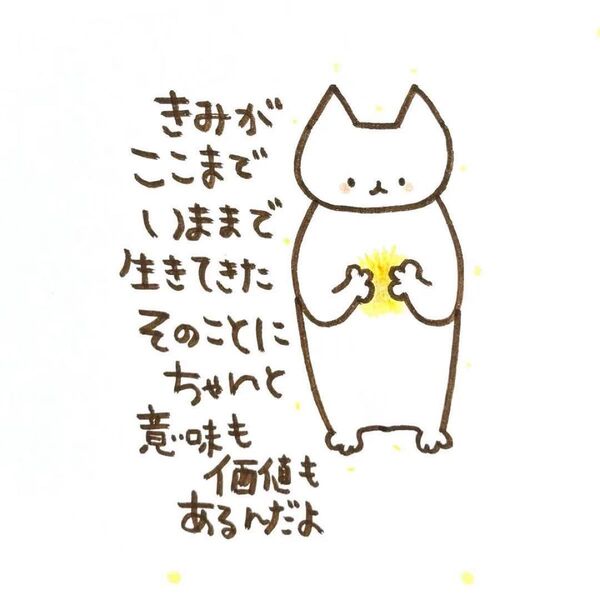 きみが
ここまで
いままで
生きてきた
そのことに
ちゃんと
意味も
価値も
あるんだよ